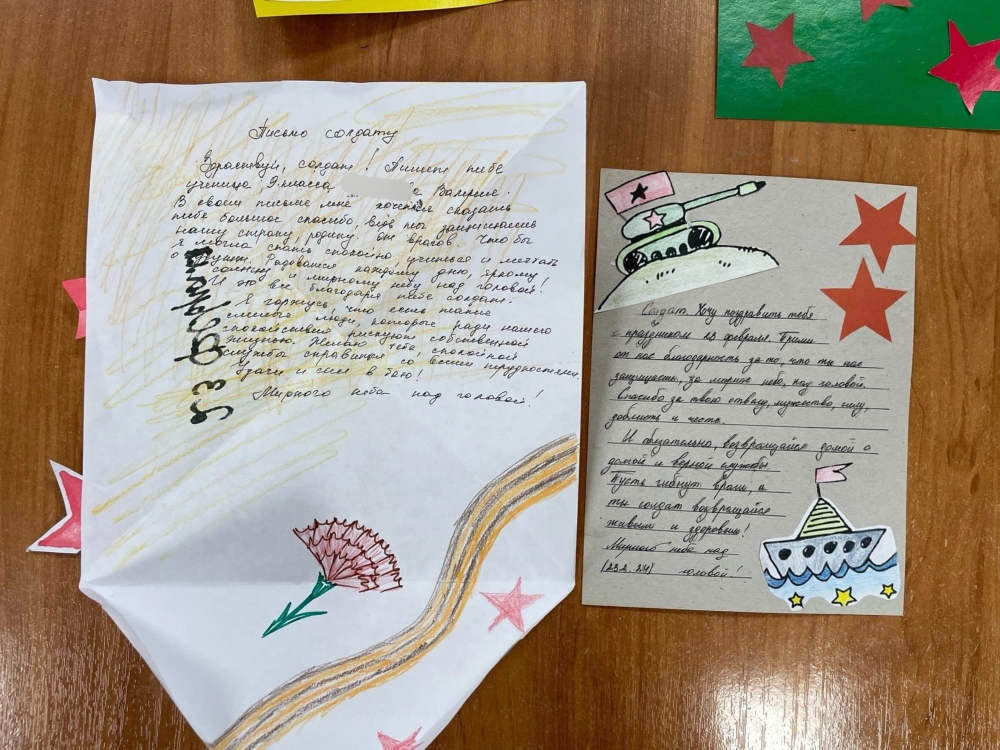 Письмо солдату
Здравствуй, солдат! Пишет тебе
ученица 9 класса Валерия.
В своем письме мне хочется сказать
тебе большое спасибо, ведь ты защищаешь
нашу страну, родину, от врагов. Что бы
я могла спать спокойно, учиться и мечтать
о лучшем. Радоваться каждому дню, яркому
солнцу и мирному небу над головой!
И это все благодаря тебе солдат.
Я горжусь что есть такие
смелые люди, которые ради нашего
спокойствия рискуют собственной
жизнью. Желаю тебе, спокойной
службы справится со всеми трудностями.
Удачи и сил в бою!
Мирного неба над головой!
23 февраля
Солдат. Хочу поздравить тебя
с праздником 23 февраля. Прими
от нас благодарность за то, что ты нас
защищаешь, за мирное небо, над головой.
Спасибо за твою отвагу, мужество, силу,
доблесть и честь.
И обязательно, возвращайся домой с
домой и верной службы.
Пусть гибнут враги, а
ты солдат возвращайся
живым и здоровым!
Мирного неба над
головой!